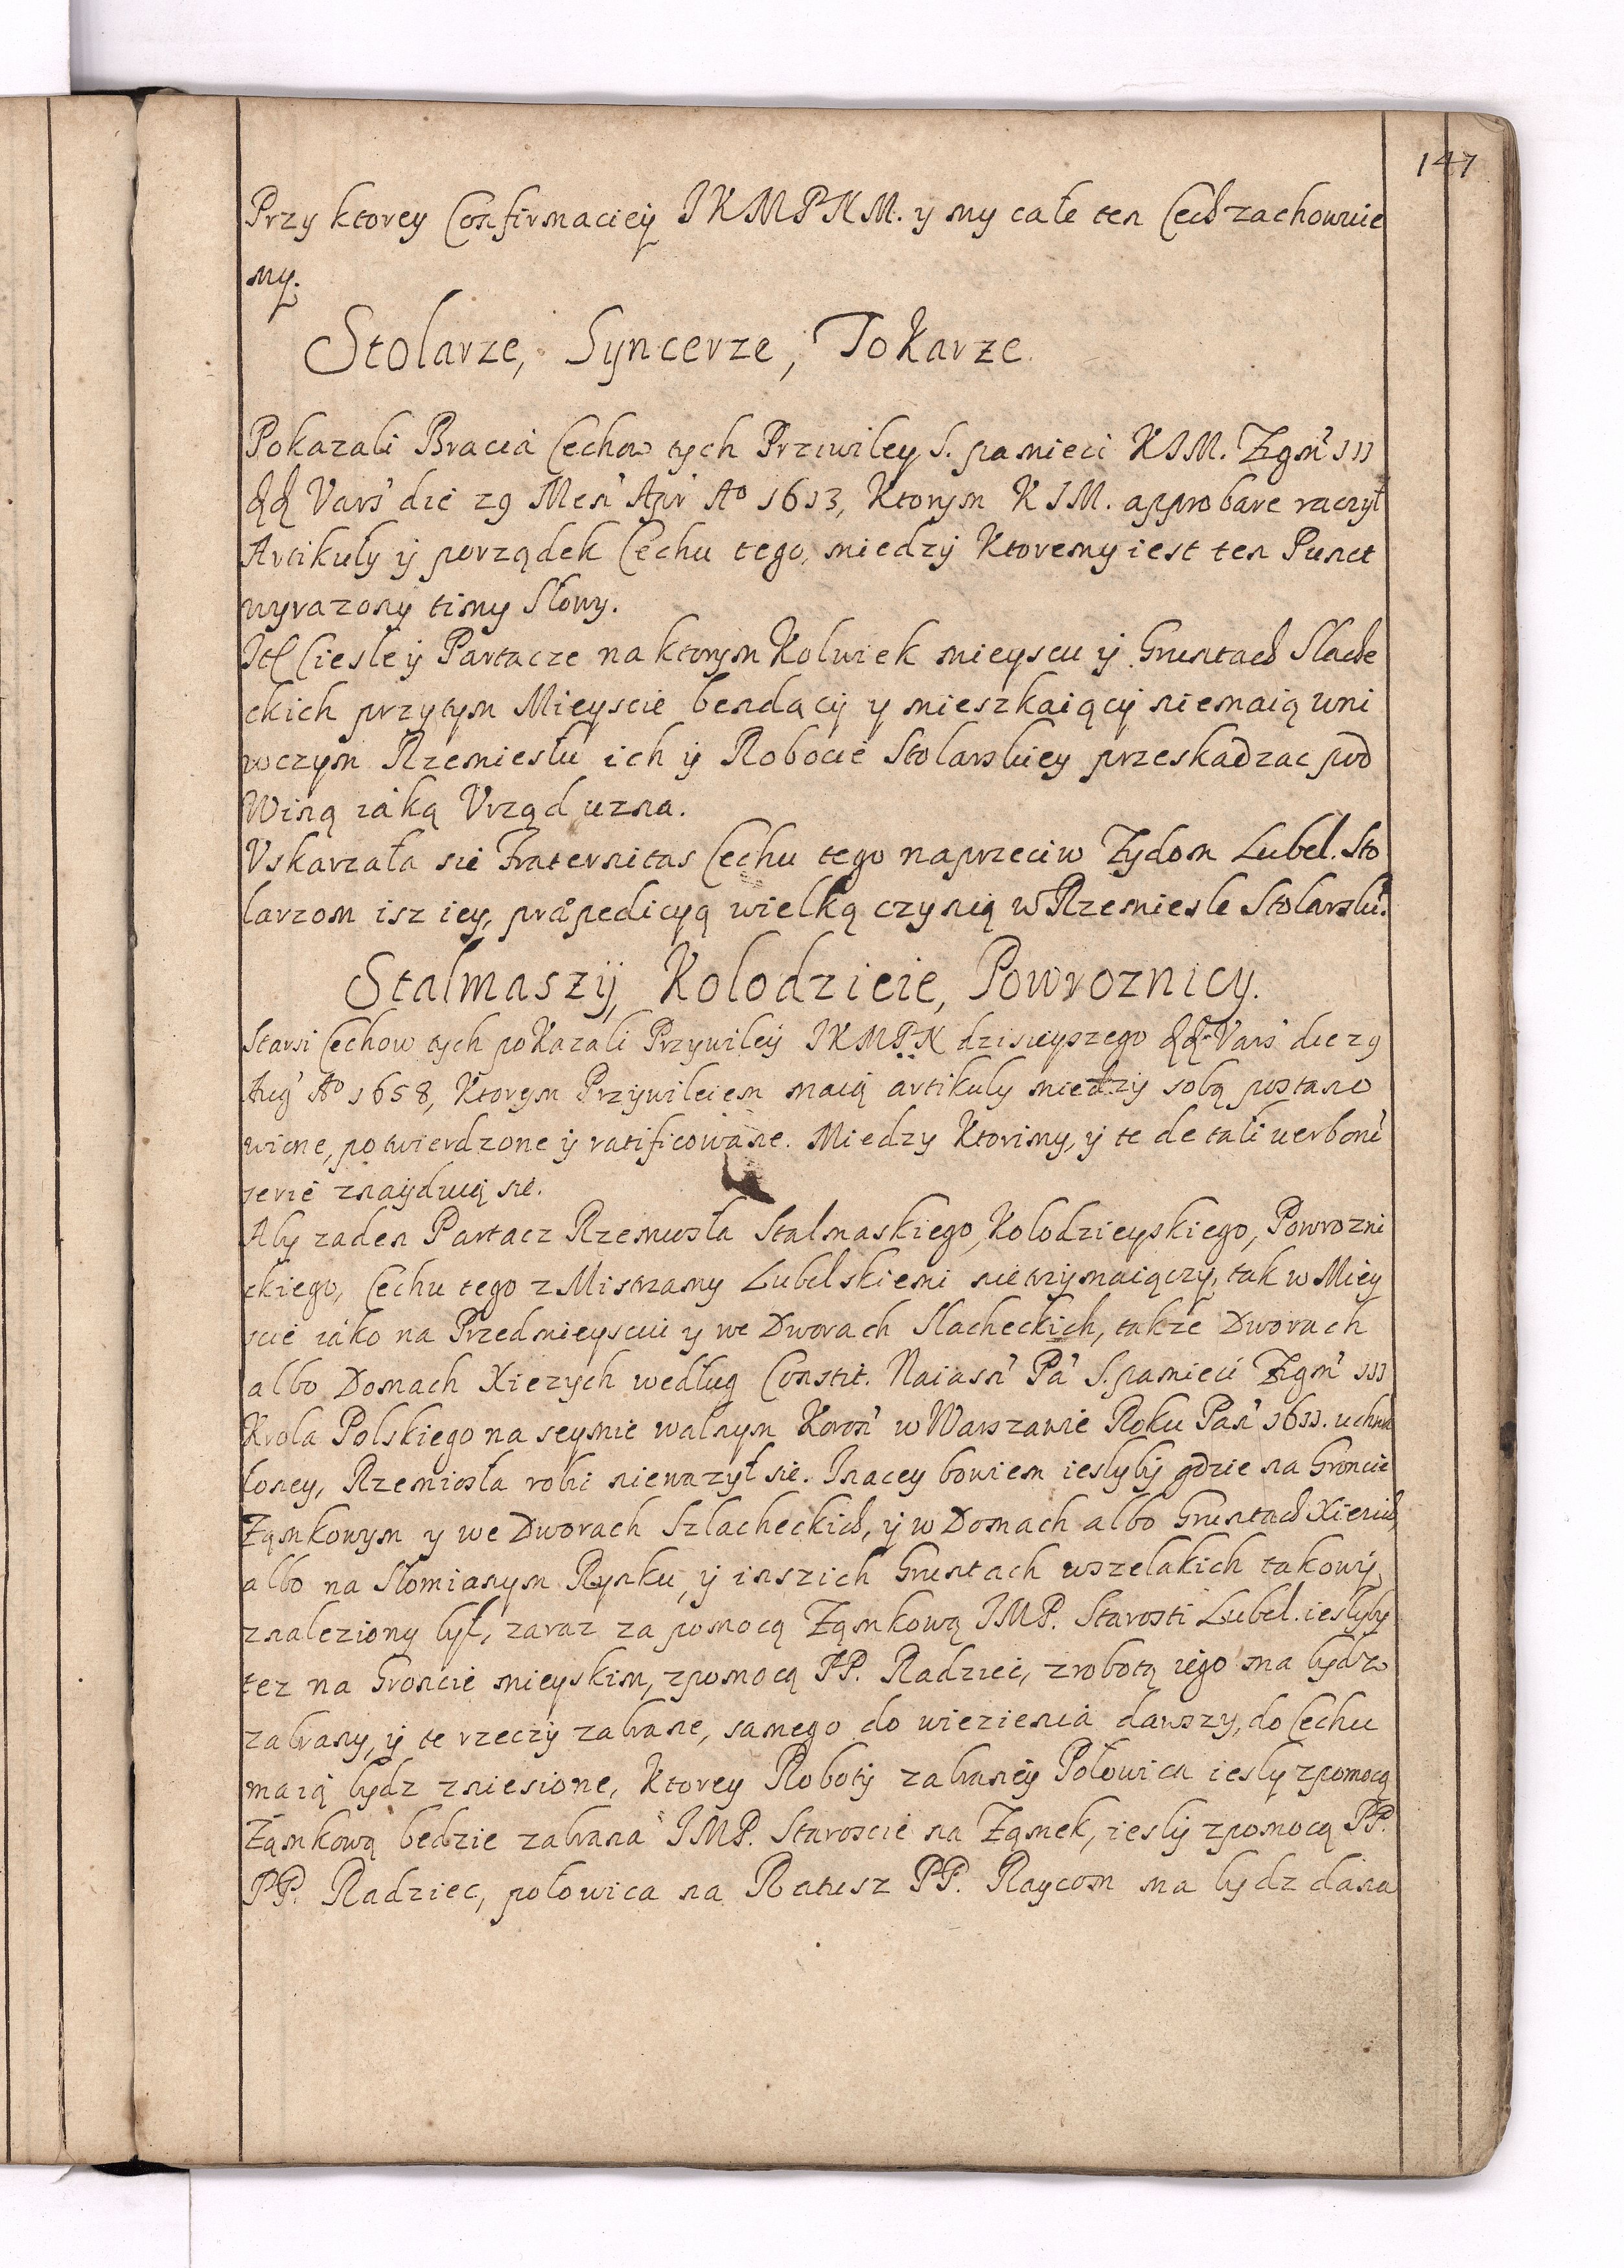 147
Przy ktorey Confirmacieÿ JKMPNM. y my całe ten Cech zachowuie
my.
Stolarze, Syncerze, Tokarze.
Pokazali Bracia Cechow tych Prziwiley S. pamieci KJM. Zigm' III
dd Vars' die 29 Men' Apr' Ao 1613, Ktorym KJM. approbare raczył
Artikuły ÿ porządek Cechu tego, miedzÿ Ktoremy iest ten Punct
wyrazonÿ timy Słowy.
Ciesle ÿ Partacze na ktorym Kolwiek mieyscu ÿ Gruntach Slache
ckich przytym Mieyscie bendącÿ y mieszkaiącÿ niemaią wni
wczym Rzemiesłu ich ÿ Robocie Stolarskiey przeskadzac pod
Winą iáką Vrząd uzna.
Vskarzała sie Fraternitas Cechu tego naprzeciw Zydom Lubel. Sto
larzom isz iey, præpedicyą wielką czynią w Rzemiesle Stolarski.
Stalmaszÿ, Kolodzieie, Powroznicy.
Starsi Cechow tych poKazali Przywileÿ JKMPN dzisieyszego dd Vars' die 29
Aug' Ao 1658, Ktorym Przÿwileiem maią artikuly miedzÿ sobą postano
wione, potwierdzone ÿ ratificowane. Miedzy Ktorimy, ÿ te de tali verborū
serie znaÿduią sie.
Aby zaden Partacz Rzemiesła Stalmaskiego, Kolodzieyskiego, Powrozni
ckiego, Cechu tego z Mistrzamy Lubelskiemi nietrzymaiączy, tak w Miey
scie iáko na Przedmieyscui y we Dworach Slacheckich, także Dworach
albo Domach Xiezych według Constit. Naiasn' Pa' S. pamieci Zigm' III
Krola Polskiego na seymie walnym Koron' w Warszawie Roku Pan' 1611. uchwa
loney, Rzemiosła robic niewazył sie. Inacey bowiem ieslybÿ gdzie na Groncie
Ząmkowym y we Dworach Szlacheckich, ÿ w Domach albo Gruntach Xiezich,
albo na Słomianym Rynku, ÿ inszich Gruntach wszelakich takowÿ,
znaleziony był, zaraz za pomocą Ząmkową JMP. Starosti Lubel. ieslyby
tez na Groncie mieyskim, zpomocą PP. Radziec, z robotą iego ma bydz
zabrany, ÿ te rzeczÿ zabrane, samego do wiezienia dawszy, do Cechu
maią bydz zniesione, Ktorey Robotÿ zabraneÿ Połowica iesly zpomocą
Ząmkową bedzie zabrana JMP. Staroscie na Ząmek, ieslÿ zpomocą PP.
PP. Radziec, połowica na Ratusz PP. Raycom ma bydz dana